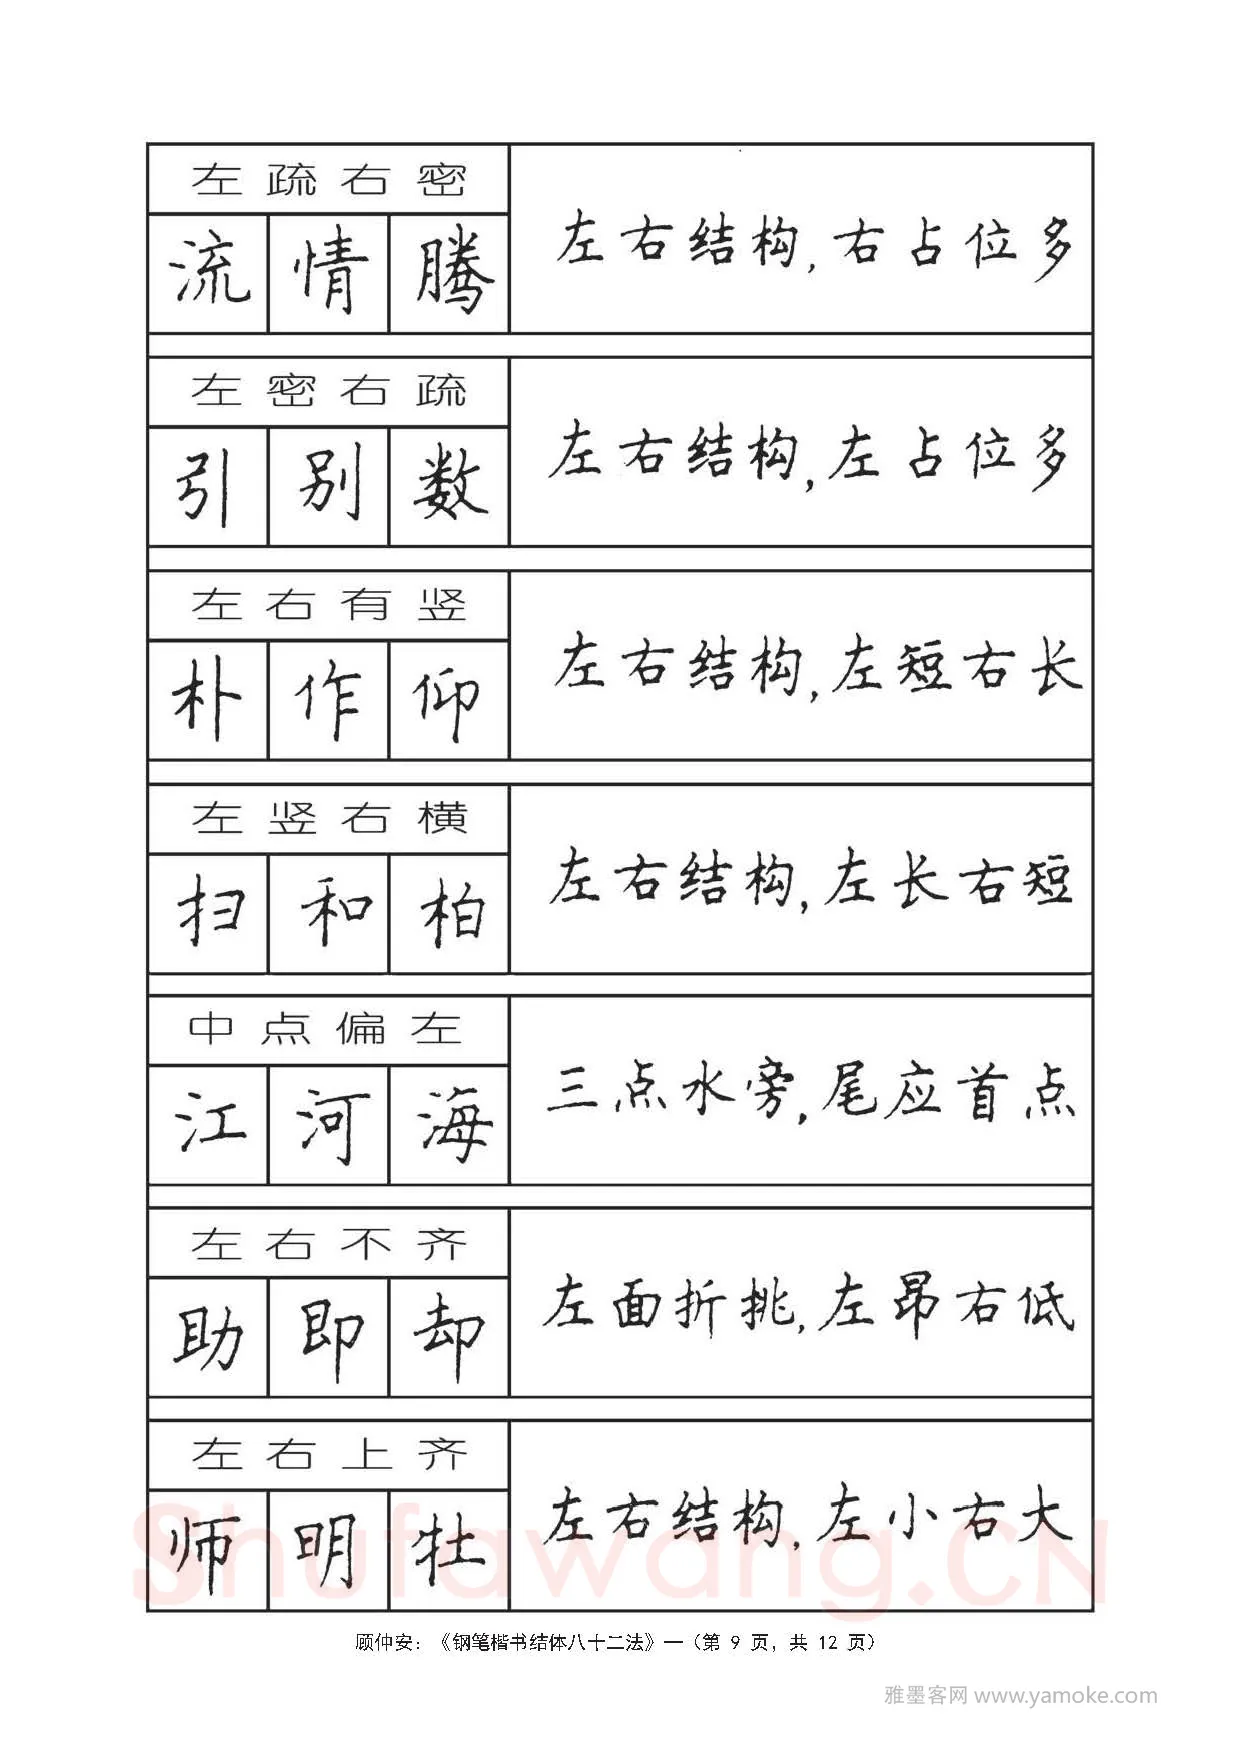 左疏右密
流 情 腾
左右结构,右占位多
左密右疏
引 别 数
左右结构,左占位多
左右有竖
朴 作 仰
左右结构,左短右长
左竖右横
扫 和 柏
左右结构,左长右短
中点偏左
江 河 海
三点水旁,尾应首点
左右不齐
助 即 却
左面折挑,左昂右低
左右上齐
师 明 牡
左右结构,左小右大
Shufawang.CN
顾仲安：《钢笔楷书结体八十二法》—（第 9 页，共 12 页）
雅墨客网 www.yamoke.com